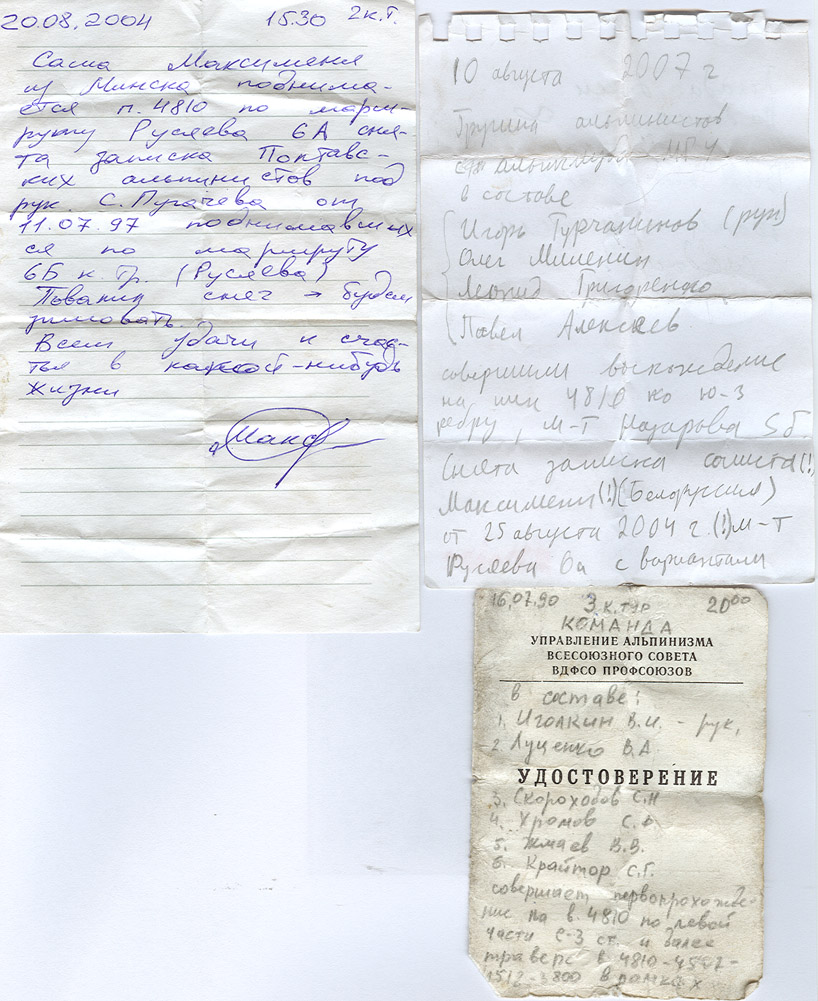 20.08.2004 15.30 2к.т.
Саша Максименя
из Минска поднима-
ется п. 4810 по марш-
руту Русяева 6А сня-
та записка Полтавс-
ких альпинистов под
рук. С. Пугачева от
11.07.97 поднимавших
ся по маршруту
6Б к.тр. (Русяева)
Повалил снег → будем
зимовать.
Всем удачи и счас-
тья в какой-нибудь
жизни
10 августа 2007 г
Группа альпинистов
в составе
Игорь Турчанинов (рук)
Олег Мишенин
Леонид Григоренко
Павел Алексеев
совершили восхождение
на пик 4810 по ю-з
ребру, м-т Назарова 5б
Снята записка солиста(!)
Максимени(!)(Белоруссия)
от 25 августа 2004 г.(!) м-т
Русяева 6а с вариантами
16.07.90 3 к.тур 20⁰⁰
КОМАНДА
УПРАВЛЕНИЕ АЛЬПИНИЗМА
ВСЕСОЮЗНОГО СОВЕТА
ВДФСО ПРОФСОЮЗОВ
в составе:
1. Иголкин В.И. - рук,
2. Луценко В.А
УДОСТОВЕРЕНИЕ
3. Скороходов С.Н
4. Храмов С.
5. Жмаев В.В.
6. Крайтор С.Г.
совершает первопрохожде-
ние на в. 4810 по левой
части С-З ст. и далее
траверс в 4810-4507-
1512-3800 в рамках